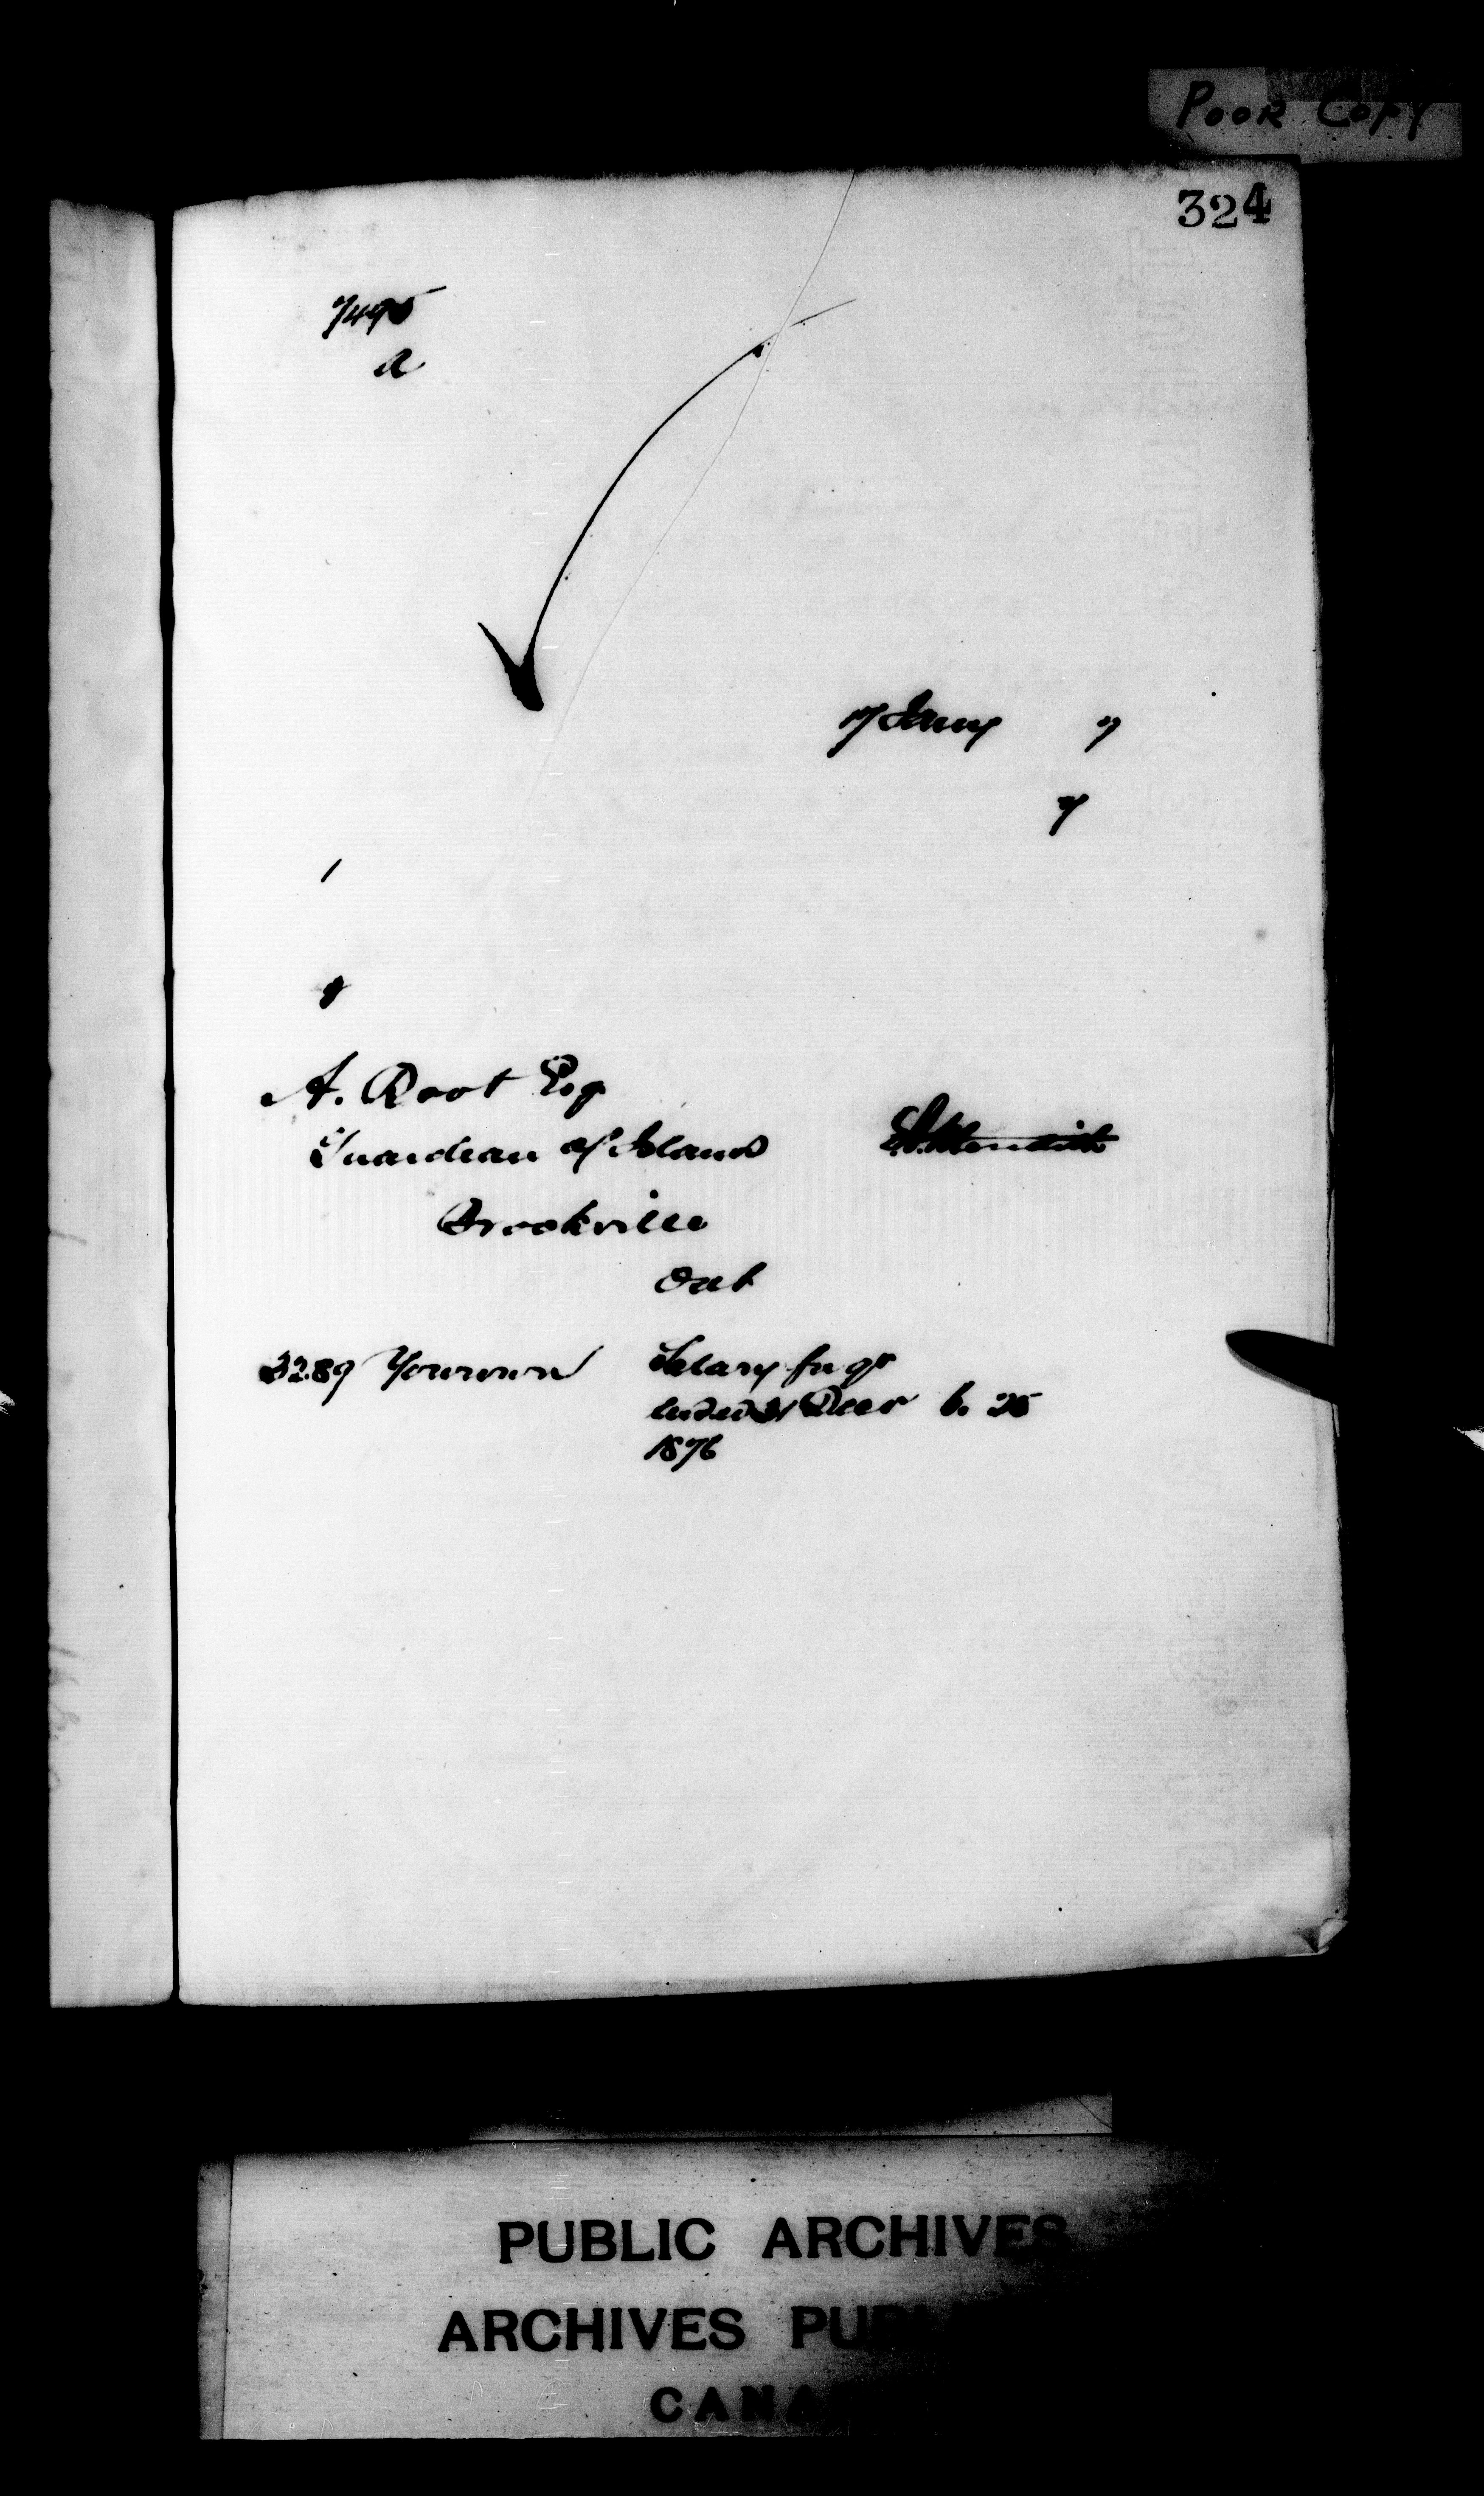 POOR COPY
324
7495
A
17 Jany 7
7
1
A. Root Esq
Guardian of Islands
Brockville
Ont
3289 Yourown Salary for qr
ended 31 Decr 6. 25
1876
PUBLIC ARCHIVES
ARCHIVES PUB
CANA